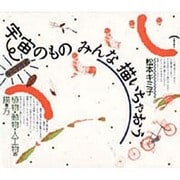 宇宙のもの みんな 描いちゃおう
松本キミ子
植物・動物・人工物の
描き方